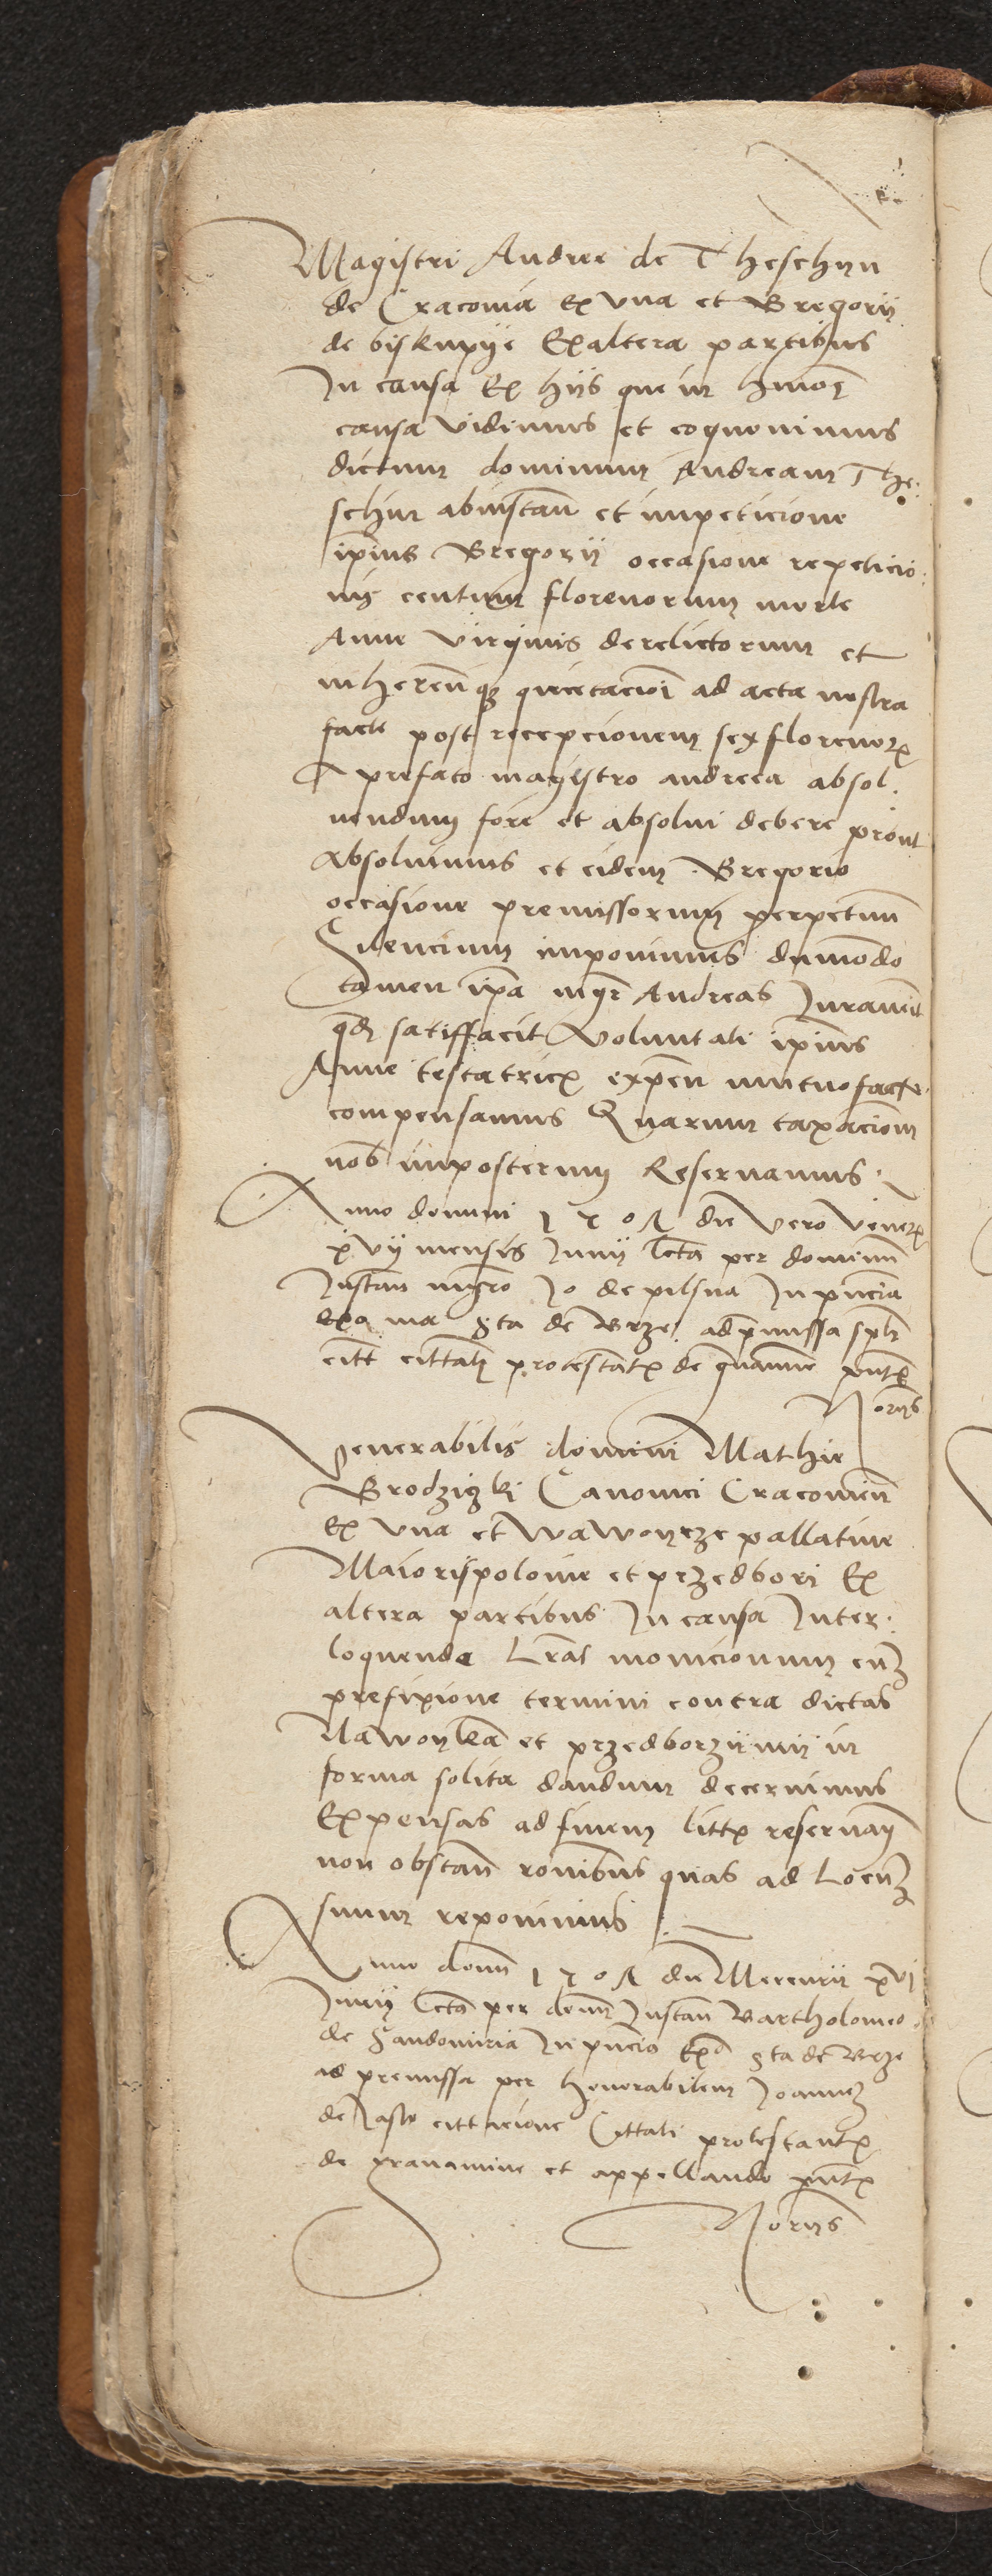 Magistri Andree de Theschyn
de Cracovia Ex una et Gregorii
de biskupÿe Ex altera partibus
In causa Ex hijs que in hmoi
causa vidimus et cognovimus
dictum dominum Andream The
schin ab instan et impeticione
ipius Gregorii occasione repeticio
nis centum florenorum morte
Anne virginis derelictorum et
inheren quietacioni ad acta nostra
facte post recepcionem sex florenor
A prefato magistro andrea absol
vendum fore et absolvi debere prout
Absolvimus et eidem Gregorio
occasione premissorum perpetuum
Silencium imponimus dummodo
tamen ipse mgr Andreas Juraverit
qd satisfacit voluntati ipius
Anne testatricis expen mutuo facte
compensamus Quarum taxacionem
nob imposterum Reservamus
Anno domini 1505 die vero vener
xvij mensis Junij lcta per dominum
Instan mgro Jo de pilsna In pncia
de Brze ad pmissa
citt protestat de gravamine pnt
Norijs
Venerabilis domini Mathie
Grodziczki Canonici Cracovien
Ex una et Wawoyncze pallatine
Maioris polonie et przedbori Ex
altera partibus In causa Inter
loquendo Lras monicionum cum
prefixione termini contra dictas
Nawoyka et przedborzium in
forma solita dandum decernimus
Expensas ad finem littis reservan
non obstan ronibus quas ad Locum
suum reponimus
Anno domi 1505 die Mercurij xvi
Junij lcta per domi Instan Bartholomeo
de Sandomiria In pncia de Brze
ad premissa per honorabilem Joannem
de Jaslo cittacione Cittati protestante
de gravamine et appellando pnt
Norijs